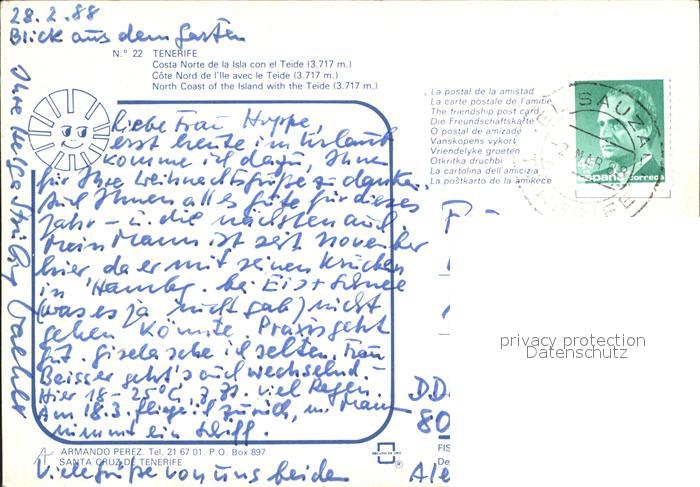 28.2.88
Blick aus dem Garten
N.° 22 TENERIFE
Costa Norte de la Isla con el Teide (3.717 m.)
Côte Nord de l'Ile avec le Teide (3.717 m.)
North Coast of the Island with the Teide (3.717 m.)
La postal de la amistad
La carte postale de l'amitié
The friendship post card
Die Freundschaftskarte
O postal de amizade
Vanskopens vykort
Vriendelyke groeten
Otkritka druchbi
La cartolina dell'amicizia
La poŝtkarto de la amikece
45
españa correos
EL SAUZAL
TENERIFE
Liebe Frau Hoppe,
erst heute im Urlaub
komme ich dazu, Ihnen
für Ihre Weihnachtsgrüße zu danken.
Auch Ihnen alles Gute für dieses
Jahr - u. die nächsten auch.
Mein Mann ist seit November
hier, da er mit seinen Krücken
in Hambg. bei Eis + Schnee
(was es ja nicht gab) nicht
gehen könnte. Praxis geht
gut. Gisela sehe ich selten. Frau
Beisser geht's auch wechselnd. -
Hier 18 - 25°C, z. Zt. viel Regen.
Am 18.3. fliege ich zurück, m. Mann
nimmt ein Schiff.
Viele Grüße von uns beiden
Ihre Helga
privacy protection
Datenschutz
DD
80
Ale
FIS
De
ARMANDO PEREZ. Tel. 21 67 01. P.O. Box 897
SANTA CRUZ DE TENERIFE